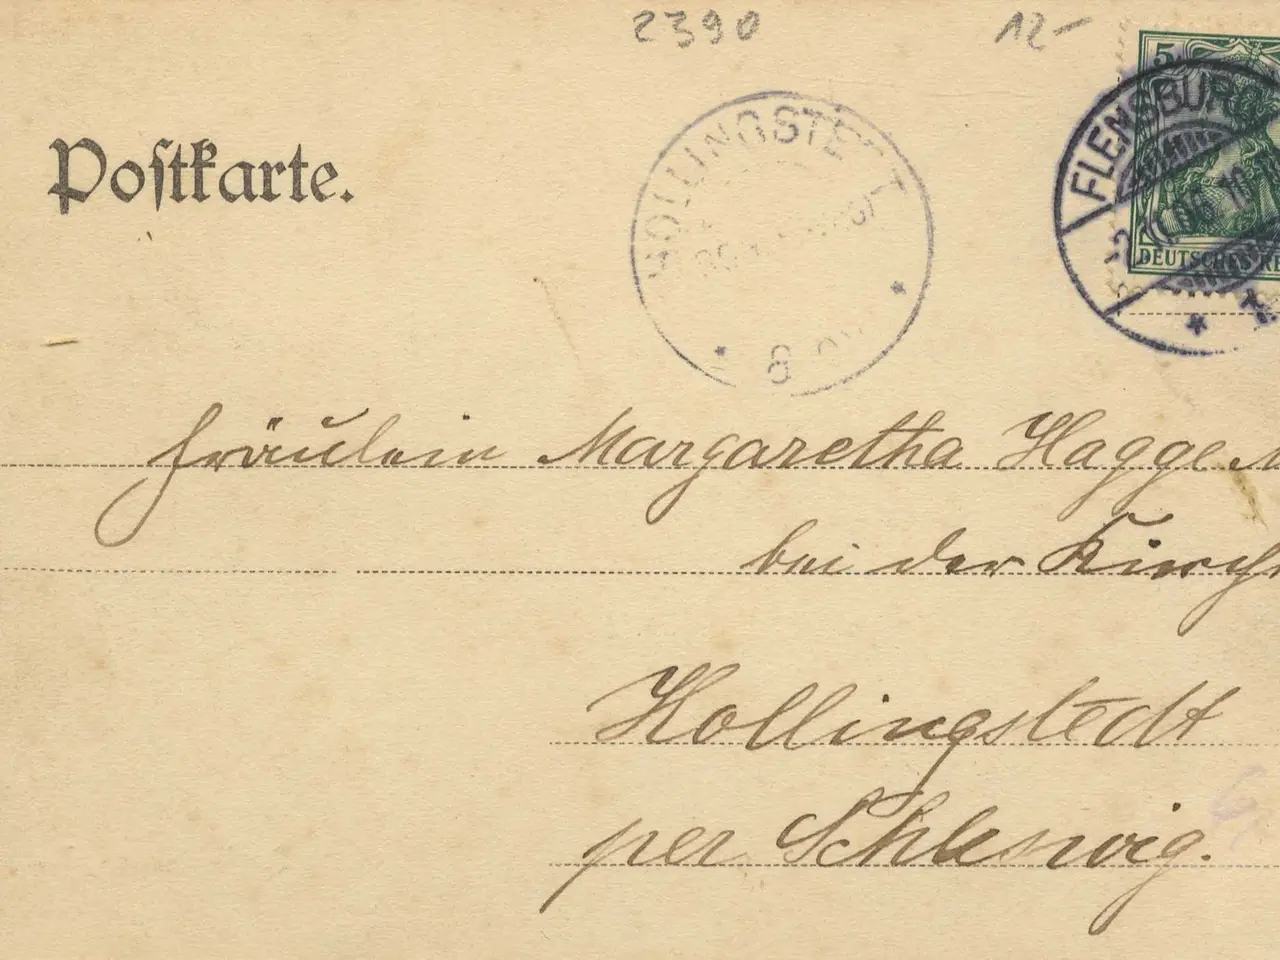 2390 12-
5
FLENSBUR
HOLLINGSTEDT
Postkarte.
DEUTSCHES RE
8
Fräulein Margaretha Hagge
bei der Kirch
Hollingstedt
per Schleswig.